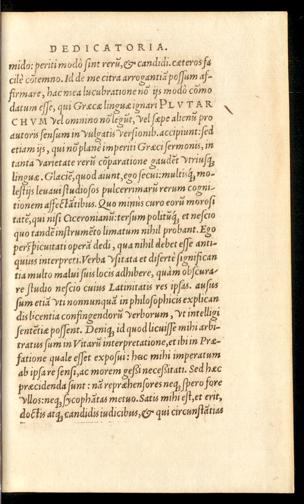 DEDICATORIA.
mido: periti modò sint rerū, & candidi. cæteros fa
cilè cōtemno. Id de me citra arrogantiā possum af-
firmare, hac mea lucubratione nō ijs modò cōmo
datum esse, qui Græcæ linguæ ignari PLVTAR
CHVM vel omnino nō legūt, vel sæpe alienū pro
autoris sensum in vulgatis versionib. accipiunt: sed
etiam ijs, qui nō planè imperiti Græci sermonis, in
tanta varietate rerū cōparatione gaudēt vtriusq;
linguæ. Glaciē, quod aiunt, ego secui: multisq́; mo-
lestijs leuaui studiosos pulcerrimarū rerum cogni-
tionem affectātibus. Quo minus curo eorū morosi
tatē, qui nisi Ciceronianū: tersum politūq́; et nescio
quo tandē instrumēto limatum nihil probant. Ego
perspicuitati operā dedi, qua nihil debet esse anti-
quius interpreti. Verba vsitata et disertè significan
tia multo malui suis locis adhibere, quàm obscura-
re studio nescio cuius Latinitatis res ipsas. ausus
sum etiā vti nonnunquā in philosophicis explican
dis licentia confingendorū verborum, vt intelligi
sentētiæ possent. Deniq; id quod licuisse mihi arbi-
tratus sum in Vitarū interpretatione, et ibi in Præ-
fatione quale esset exposui: huc mihi imperatum
ab ipsa re sensi, ac morem gessi necessitati. Sed hæc
præcidenda sunt: nā repræhensores neq; spero fore
vllos: neq; sycophātas metuo. Satis mihi est, et erit,
doctis atq; candidis iudicibus, & qui circunstātias